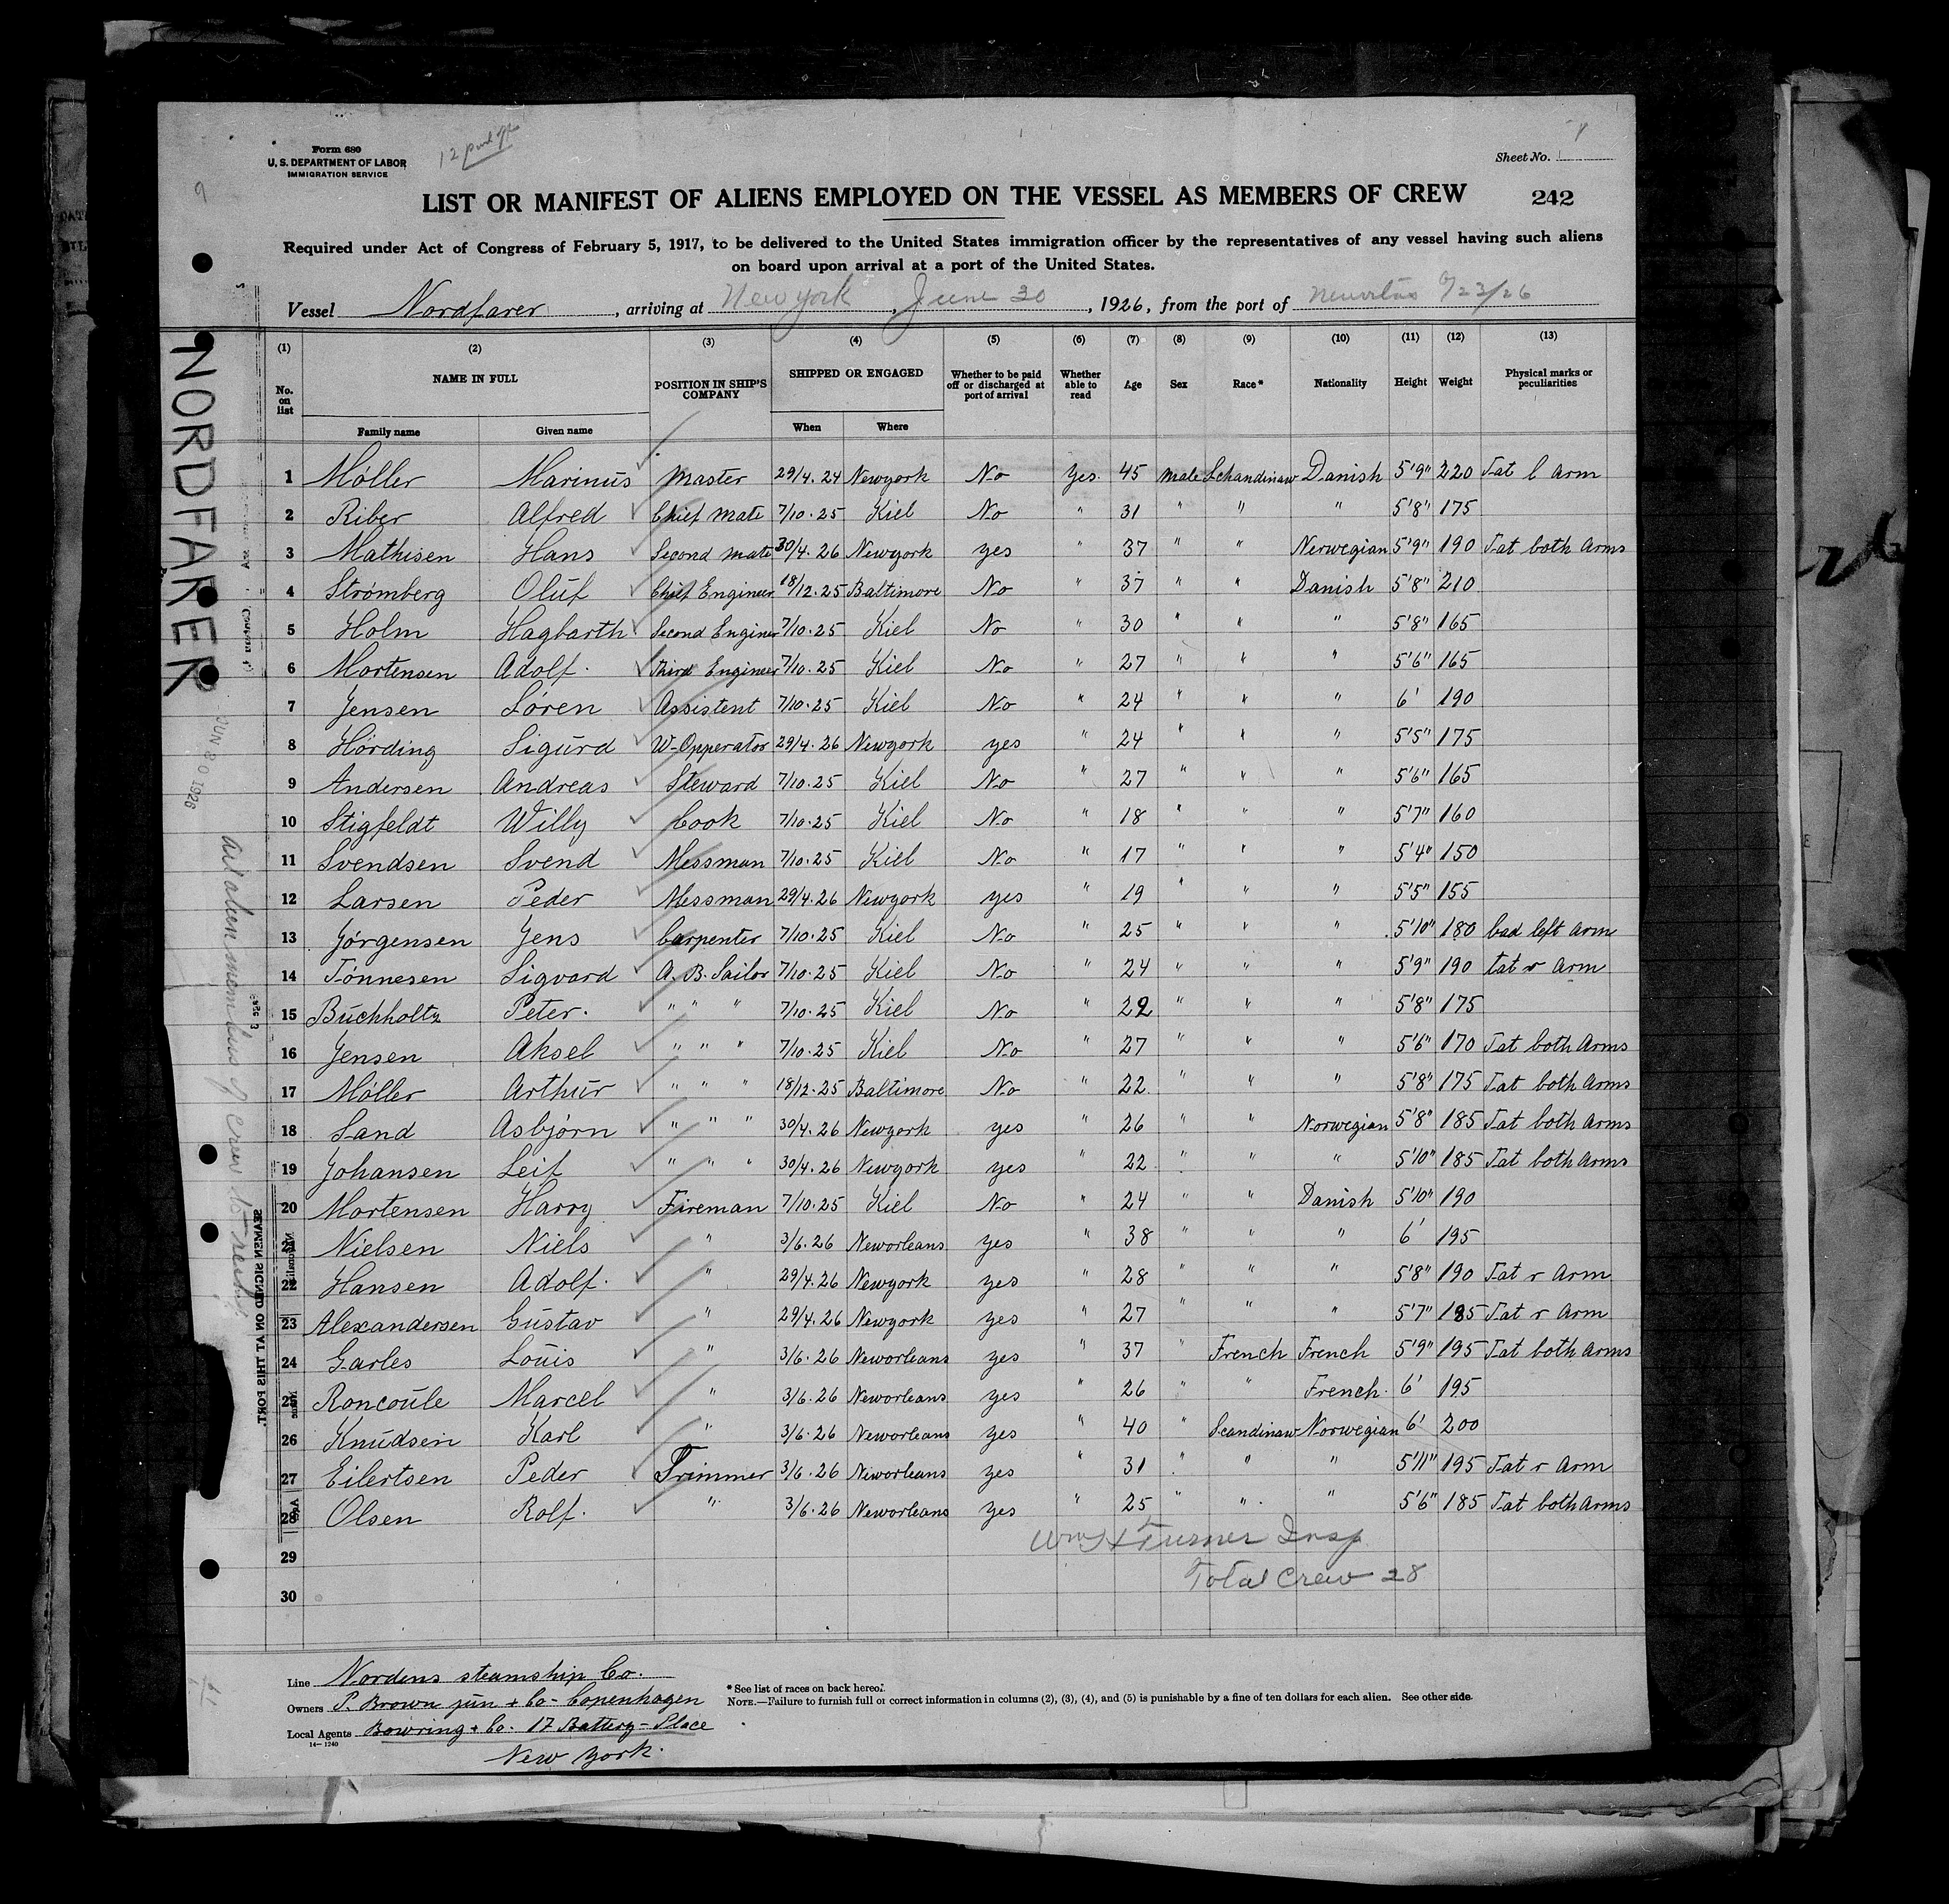 Form 680
U. S. DEPARTMENT OF LABOR
IMMIGRATION SERVICE
12
Sheet No. 1
LIST OR MANIFEST OF ALIENS EMPLOYED ON THE VESSEL AS MEMBERS OF CREW
242
Required under Act of Congress of February 5, 1917, to be delivered to the United States immigration officer by the representatives of any vessel having such aliens
on board upon arrival at a port of the United States.
Vessel Nordfarer, arriving at New york, June 30, 1926, from the port of 6/23/26
(1) (2) (3) (4) (5) (6) (7) (8) (9) (10) (11) (12) (13)
No. on list NAME IN FULL POSITION IN SHIP'S COMPANY SHIPPED OR ENGAGED Whether to be paid off or discharged at port of arrival Whether able to read Age Sex Race* Nationality Height Weight Physical marks or peculiarities
Family name Given name When Where
1 Møller Marinus Master 29/4. 24 Newyork No Yes. 45 male Schandinaw Danish 5'9" 220 Tat l arm
2 Riber Alfred Chief Mate 7/10. 25 Kiel No " 31 " " " 5'8" 175
3 Mathisen Hans Second mate 30/4. 26 Newyork yes " 37 " " Nerwegian 5'9" 190 Tat both arms
4 Strømberg Oluf Chief Engineer 18/12. 25 Baltimore No " 37 " " Danish 5'8" 210
5 Holm Hagbarth Second Enginer 7/10. 25 Kiel No " 30 " " " 5'8" 165
6 Mortensen Adolf. third Engineer 7/10. 25 Kiel No " 27 " " " 5'6" 165
7 Jensen Søren Assistent 7/10. 25 Kiel No " 24 " " " 6' 190
8 Hørding Sigurd W-Opperator 29/4. 26 Newyork yes " 24 " " " 5'5" 175
9 Andersen Andreas Steward 7/10. 25 Kiel No " 27 " " " 5'6" 165
10 Stigfeldt Willy Cook 7/10. 25 Kiel No " 18 " " " 5'7" 160
11 Svendsen Svend Messman 7/10. 25 Kiel No " 17 " " " 5'4" 150
12 Larsen Peder Messman 29/4. 26 Newyork yes " 19 " " " 5'5" 155
13 Jørgensen Jens Carpenter 7/10. 25 Kiel No " 25 " " " 5'10" 180 bad left arm
14 Tønnesen Sigvard A. B. Sailor 7/10. 25 Kiel No " 24 " " " 5'9" 190 tat r arm
15 Buchholtz Peter. " " " 7/10. 25 Kiel No " 22 " " " 5'8" 175
16 Jensen Aksel " " " 7/10. 25 Kiel No " 27 " " " 5'6" 170 Tat both arms
17 Møller Arthur " " " 18/12. 25 Baltimore No " 22. " " " 5'8" 175 Tat both arms
18 Sand Asbjørn " " " 30/4. 26 Newyork yes " 26 " " Norwegian 5'8" 185 Tat both arms
19 Johansen Leif " " " 30/4. 26 Newyork yes " 22 " " " 5'10" 185 Tat both arms
20 Mortensen Harry Fireman 7/10. 25 Kiel No " 24 " " Danish 5'10" 190
21 Nielsen Niels " 3/6. 26 Neworleans yes " 38 " " " 6' 195
22 Hansen Adolf. " 29/4. 26 Newyork yes " 28 " " " 5'8" 190 Tat r arm
23 Alexandersen Gustav " 29/4. 26 Newyork yes " 27 " " " 5'7" 185 Tat r arm
24 Garles Louis " 3/6. 26 Neworleans yes " 37 " French French 5'9" 195 Tat both arms
25 Roncoule Marcel " 3/6. 26 Neworleans yes " 26 " " French. 6' 195
26 Knudsen Karl " 3/6. 26 Neworleans yes " 40 " Scandinaw Norwegian 6' 200
27 Eilertsen Peder Trimmer 3/6. 26 Neworleans yes " 31 " " " 5'11" 195 Tat r arm
28 Olsen Rolf. " 3/6. 26 Neworleans yes " 25 " " " 5'6" 185 Tat both arms
29
30
Wm H Turner Insp.
Total Crew 28
Line Nordens steamship Co.
Owners P. Brown jun + Co - Copenhagen
Local Agents Bowring + Co. 17 Battery - Place
New York.
14—1240
* See list of races on back hereof.
NOTE.—Failure to furnish full or correct information in columns (2), (3), (4), and (5) is punishable by a fine of ten dollars for each alien. See other side.
NORDFARER
JUN 30 1926
all alien members of crew
SEAMEN SIGNED ON AT THIS PORT.